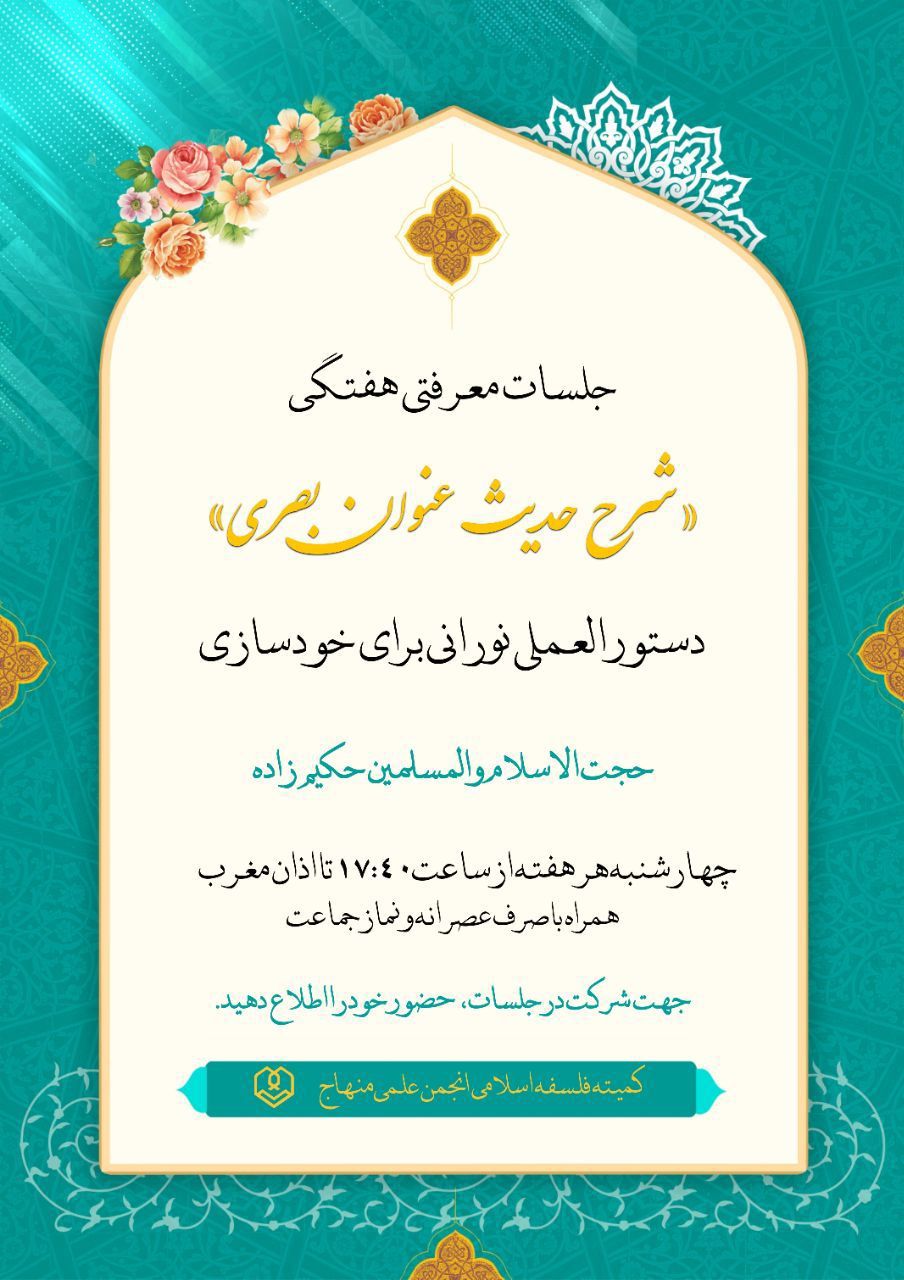 جلسات معرفتی هفتگی
«شرح حدیث عنوان بصری»
دستورالعملی نورانی برای خودسازی
حجت الاسلام والمسلمین حکیم زاده
چهارشنبه هر هفته از ساعت ۱۷:۴۰ تا اذان مغرب
همراه با صرف عصرانه و نماز جماعت
جهت شرکت در جلسات، حضور خود را اطلاع دهید.
کمیته فلسفه اسلامی انجمن علمی منهاج